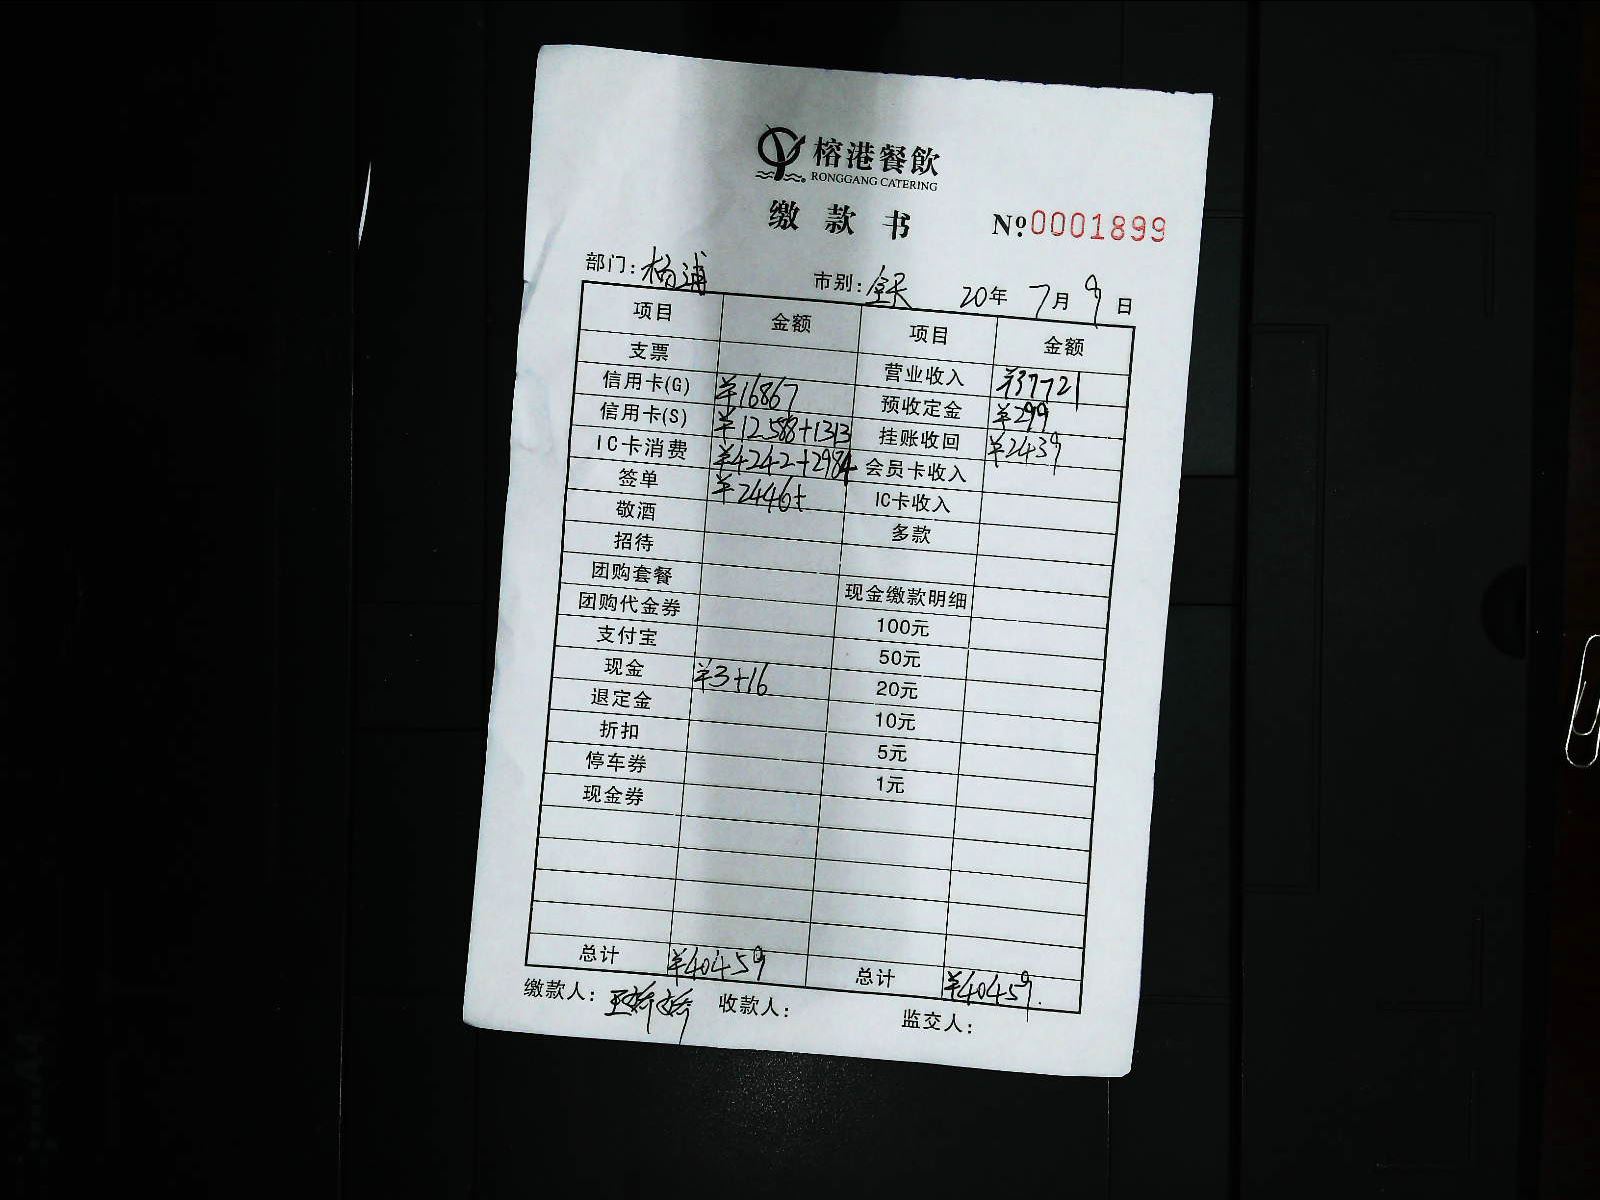 榕港餐飲
RONGGANG CATERING
缴款书 Nº0001899
部门：杨浦 市别：全天 20年 7月 9日
项目 金额 项目 金额
支票 营业收入 ¥37721
信用卡(G) ¥16867 预收定金 ¥299
信用卡(S) ¥12588+1313 挂账收回 ¥2439
IC卡消费 ¥4242+2984 会员卡收入
签单 ¥2446 IC卡收入
敬酒 多款
招待
团购套餐 现金缴款明细
团购代金券 100元
支付宝 50元
现金 ¥3+16 20元
退定金 10元
折扣 5元
停车券 1元
现金券
总计 ¥40459 总计 ¥40459
缴款人： 收款人： 监交人：